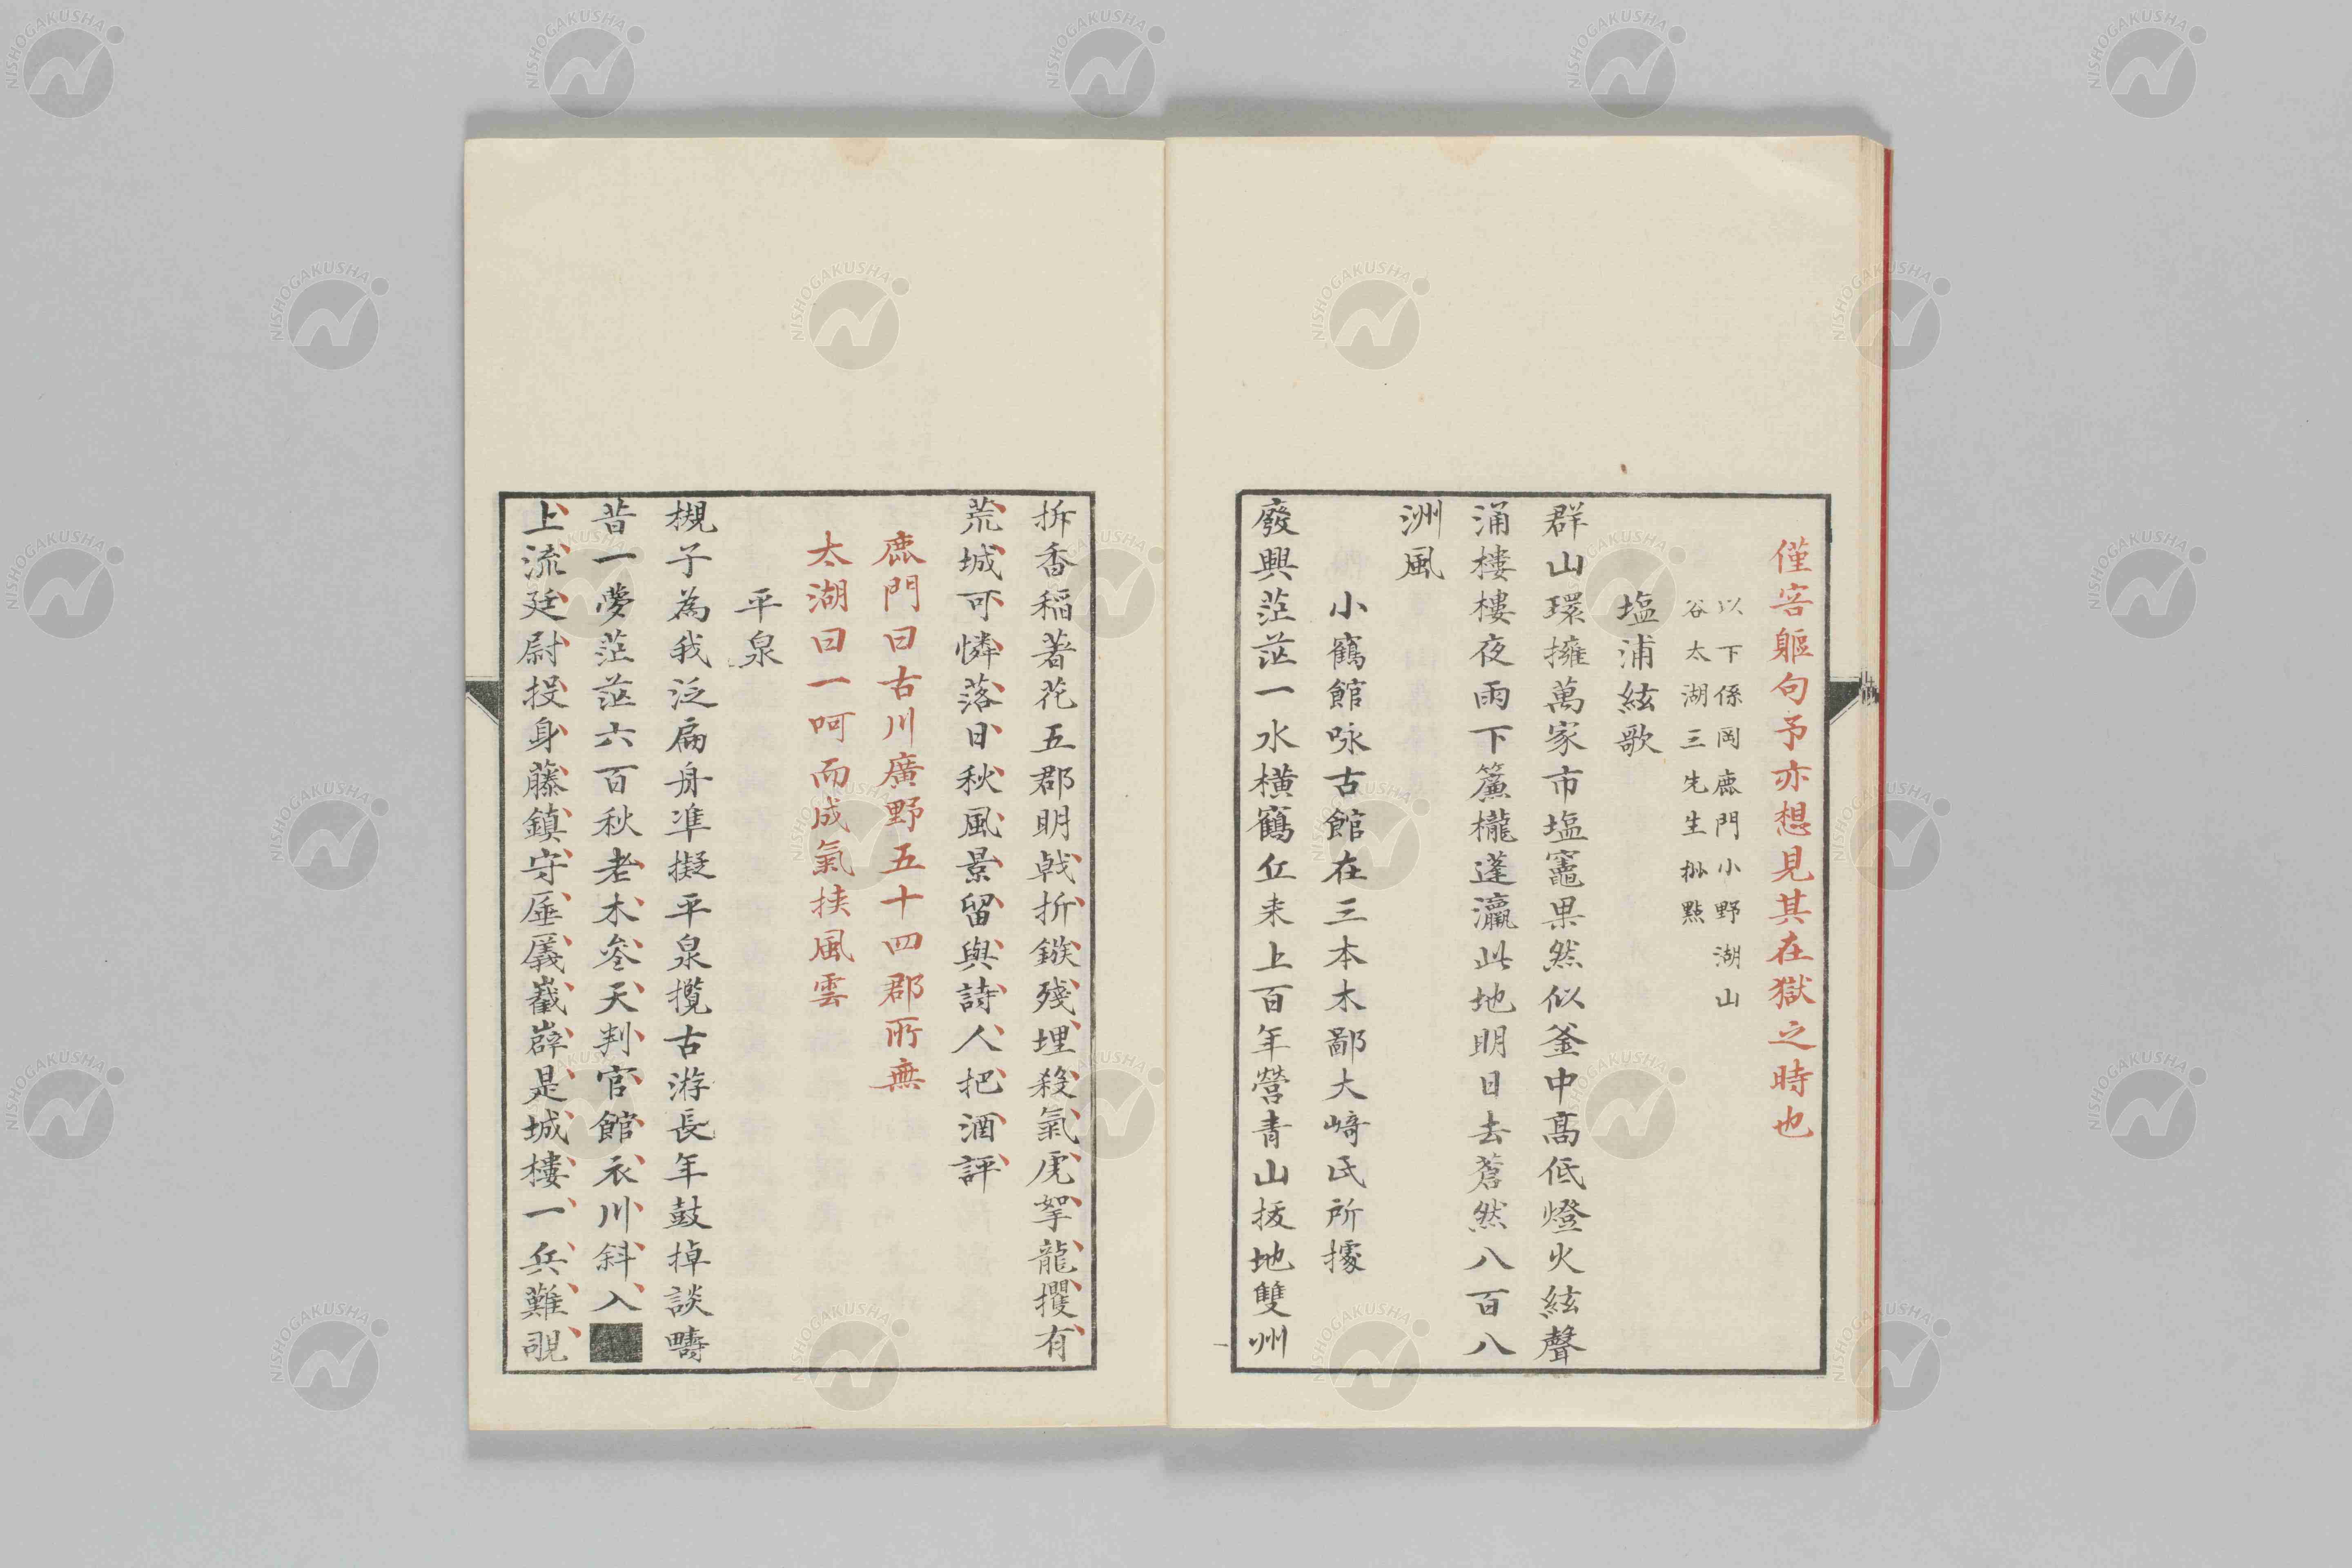 僅容軀句予亦想見其在獄之時也
以下係岡鹿門小野湖山
谷太湖三先生批點
塩浦絃歌
群山環擁萬家市塩竈果然似釜中髙低燈火絃聲
涌樓樓夜雨下簾櫳蓬瀛此地明日去蒼然八百八
洲風
小鶴館咏古館在三本木鄙大﨑氏所據
廢興茫茫一水横鶴丘来上百年營青山拔地雙州
拆香稲著花五郡明戟折鏃殘埋殺氣虎拏龍攫有
荒城可憐落日秋風景留與詩人把酒評
鹿門曰古川廣野五十四郡所無
太湖曰一呵而成氣挟風雲
平泉
槻子為我泛扁舟準擬平泉攬古游長年鼓掉談疇
昔一夢茫茫六百秋老木参天判官館衣川斜入
上流廷尉投身藤鎮守厓㕒巀嶭是城樓一兵難覗
NISHOGAKUSHA